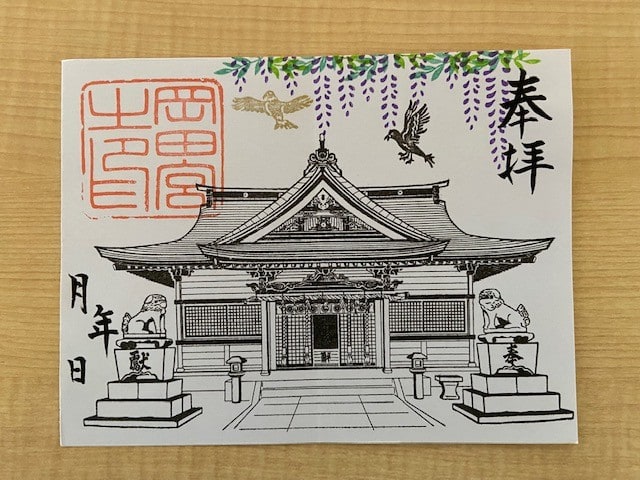 奉拝
岡田宮
之印
奉
獻
年
月日